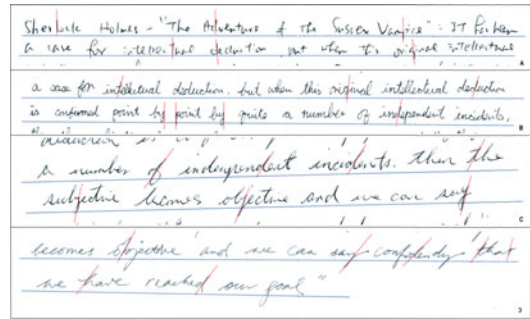 Sherlock Holmes - "The Adventure of the Sussex Vampire": It has been
a case for intellectual deduction but when this original intellectual
A
a case for intellectual deduction, but when this original intellectual deduction
is confirmed point by point by quite a number of independent incidents,
B
a number of independent incidents. then the
subjective becomes objective and we can say
C
becomes objective and we can say confidently that
we have reached our goal"
D